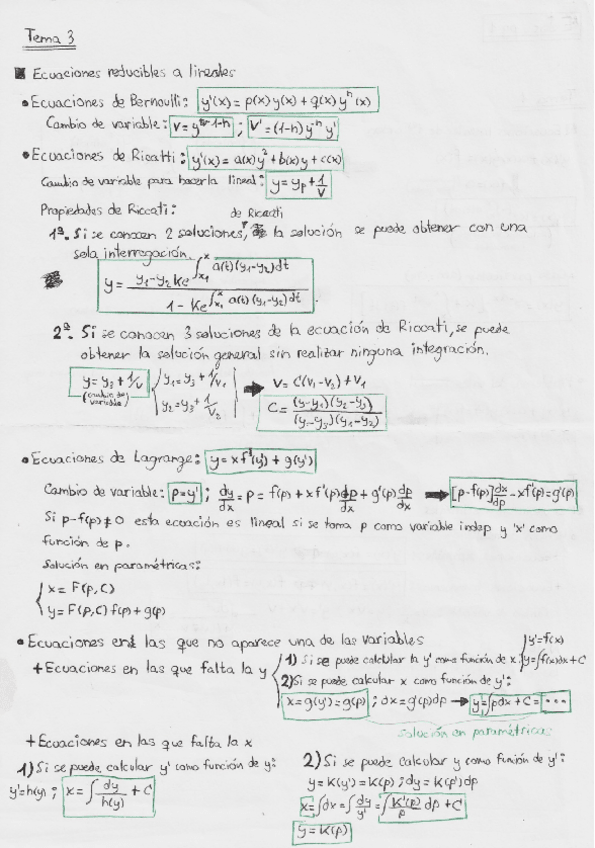 Tema 3
Ecuaciones reducibles a lineales
• Ecuaciones de Bernoulli: y'(x) = p(x) y(x) + q(x) yⁿ(x)
Cambio de variable: V = y^(1-n) ; V' = (1-n) y^(-n) y'
• Ecuaciones de Ricatti: y'(x) = a(x)y² + b(x)y + c(x)
Cambio de variable para hacerla lineal: y = y_p + 1/V
Propiedades de Riccati:
1ª. Si se conocen 2 soluciones, de Riccati la solución se puede obtener con una
sola interrogación.
y = (y₁ - y₂ K e^(∫_{x₁}^{x} a(t)(y₁-y₂)dt)) / (1 - K e^(∫_{x₁}^{x} a(t)(y₁-y₂)dt)).
2ª. Si se conocen 3 soluciones de la ecuación de Riccati, se puede
obtener la solución general sin realizar ninguna integración.
y = y₃ + 1/V (cambio de variable) { y₁ = y₃ + 1/V₁ ; y₂ = y₃ + 1/V₂ → V = C(V₁ - V₂) + V₁
C = (y-y₁)(y₂-y₃) / (y-y₃)(y₁-y₂)
• Ecuaciones de Lagrange: y = x f(y') + g(y')
Cambio de variable: p = y' ; dy/dx = p = f(p) + x f'(p) dp/dx + g'(p) dp/dx → [p - f(p)] dx/dp - x f'(p) = g'(p)
Si p - f(p) ≠ 0 esta ecuación es lineal si se toma p como variable indep y 'x' como
función de p.
Solución en paramétricas:
{ x = F(p,C)
y = F(p,C) f(p) + g(p)
• Ecuaciones en las que no aparece una de las variables
+ Ecuaciones en las que falta la y
1) Si se puede calcular la y' como función de x. { y' = f(x)
y = ∫f(x)dx + C
2) Si se puede calcular x como función de y':
x = g(y') = g(p) ; dx = g'(p)dp → y = ∫pdx + C = ...
solución en paramétricas
+ Ecuaciones en las que falta la x
1) Si se puede calcular y' como función de y:
y' = h(y) ; x = ∫ dy/h(y) + C
2) Si se puede calcular y como funión de y':
y = K(y') = K(p) ; dy = K'(p) dp
x = ∫dx = ∫ dy/y' = ∫ K'(p)/p dp + C
y = K(p)